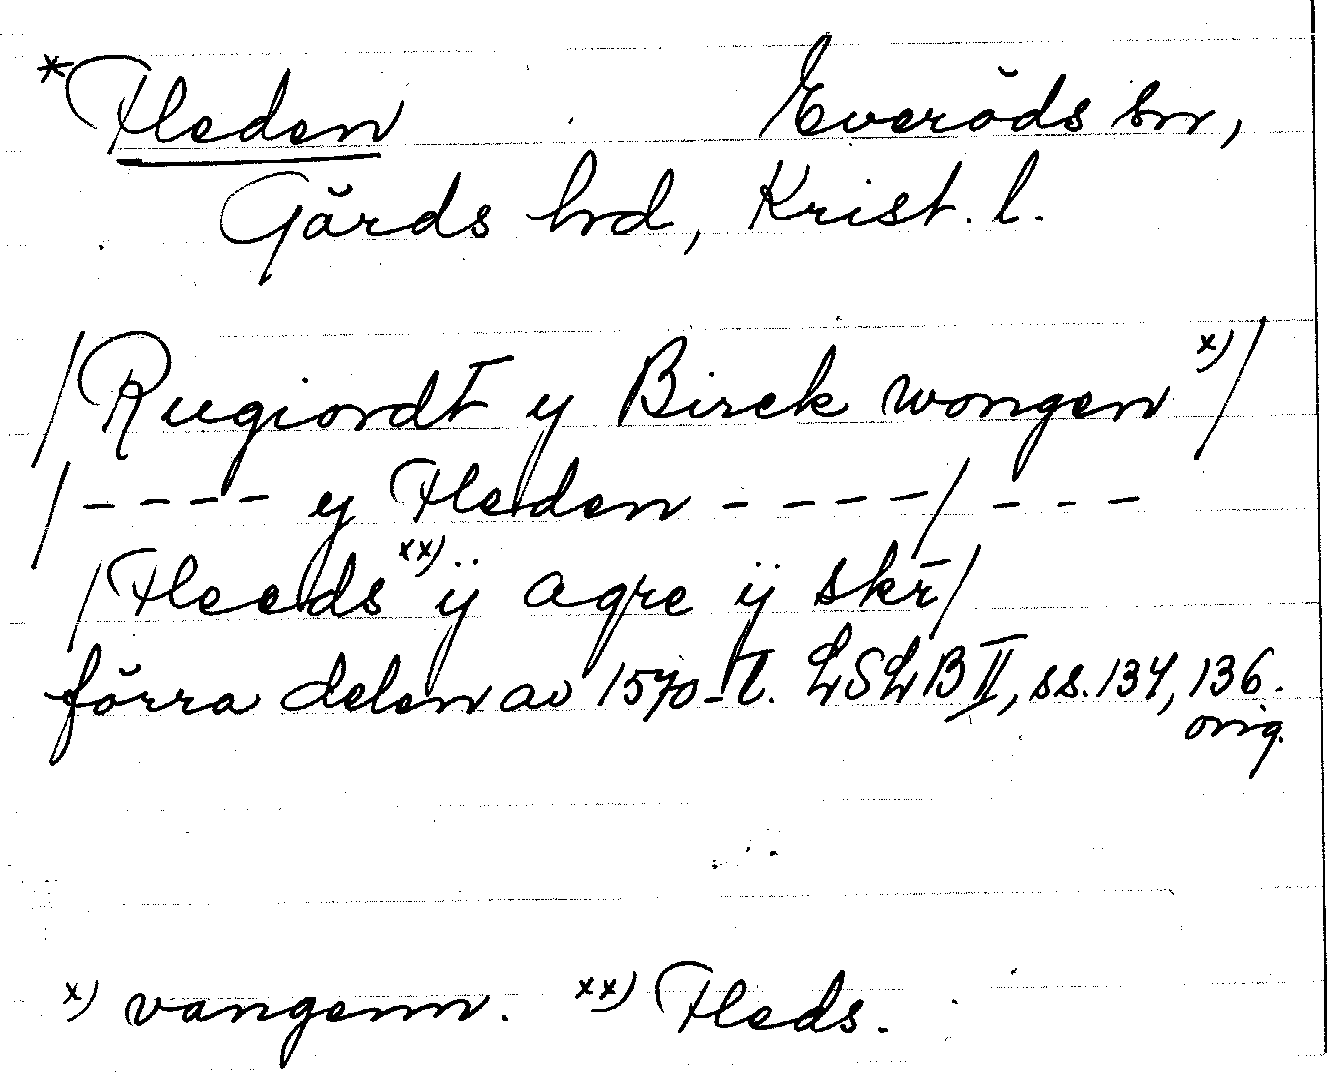 *Heden Everöds sn,
Gärds hrd, Krist. l.
/Rugiordt y Birck wongen x)/
/---- y Heden ----/ ---
/Heeds xx) ÿ agre ÿ skr̄/
förra delen av 1570-t. LSLB II, ss. 134, 136.
orig.
x) vangenn. xx) Heds.